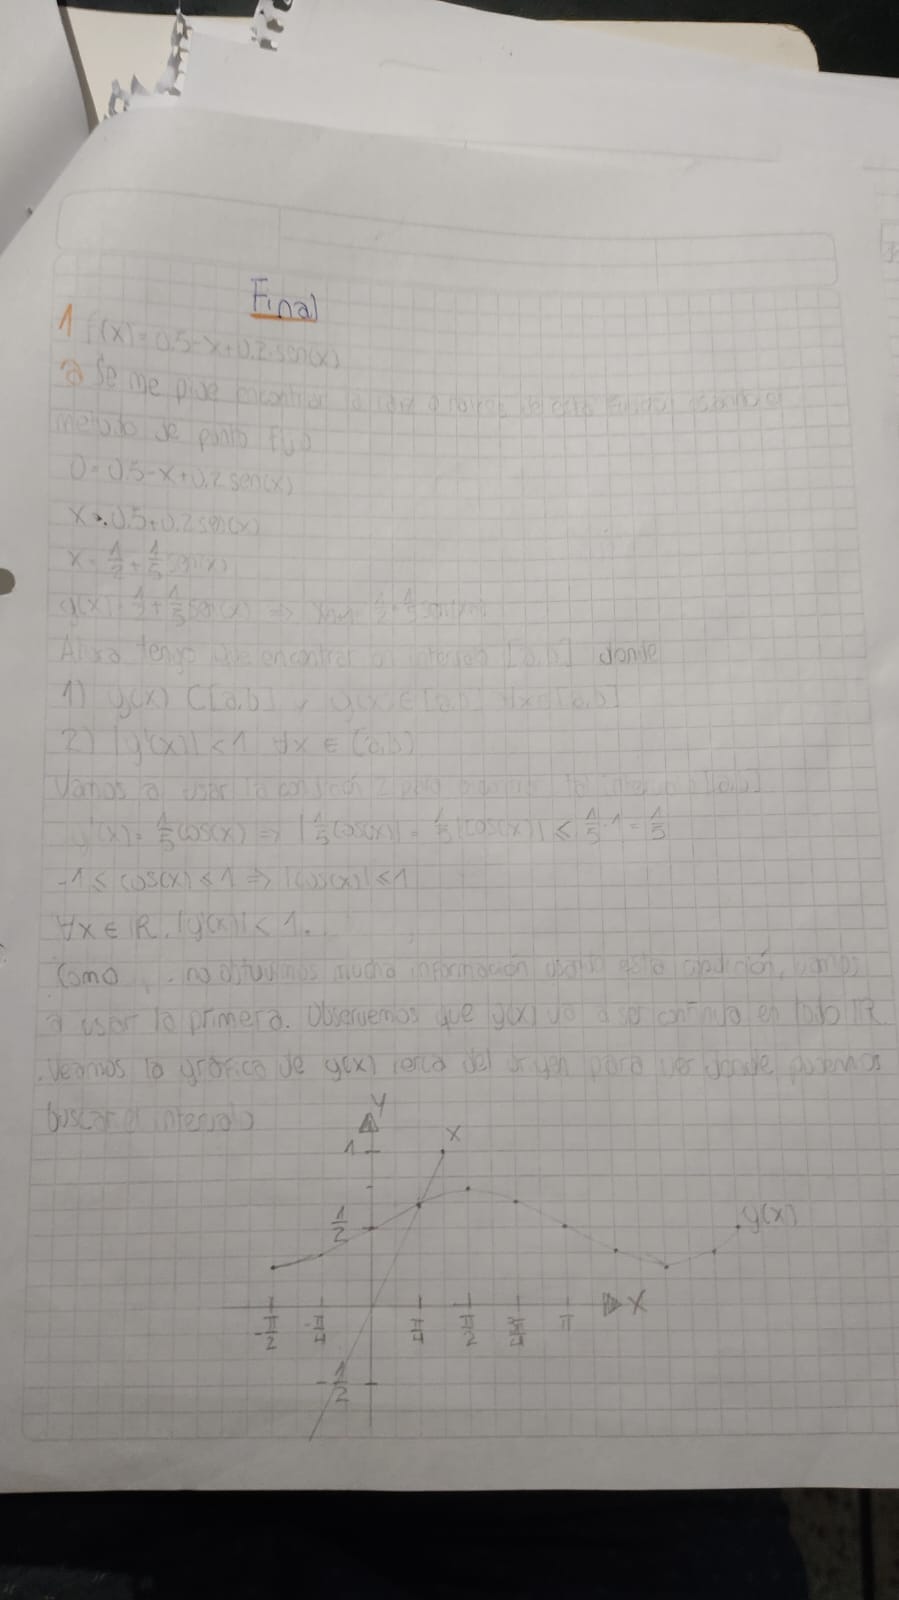 Final
1 f(x)=0.5-x+0.2sen(x)
a Se me pide encontrar la raíz de esta función usando el
método de punto fijo
0=0.5-x+0.2sen(x)
x=0.5+0.2sen(x)
x=1/2+1/5sen(x)
g(x)=1/2+1/5sen(x) ⇒ 1/2+1/5
Ahora tengo que encontrar un intervalo [a,b] donde
1) g(x) C[a,b] y g(x)∈[a,b] ∀x∈[a,b]
2) |g'(x)|<1 ∀x ∈ (a,b)
Vamos a usar la condición 2 para el intervalo [a,b]
g'(x)=1/5cos(x) ⇒ |1/5cos(x)|=1/5|cos(x)| ≤ 1/5·1=1/5
-1≤cos(x)≤1 ⇒ |cos(x)|≤1
∀x∈ℝ, |g'(x)|<1.
Como no obtuvimos mucha información usando esta condición, vamos
a usar la primera. Observemos que g(x) va a ser continua en todo ℝ
Veamos la gráfica de g(x) cerca del origen para ver donde podemos
buscar el intervalo
y
x
1
1/2
g(x)
x
-π/2 -π/4 π/4 π/2 3π/4 π
-1/2